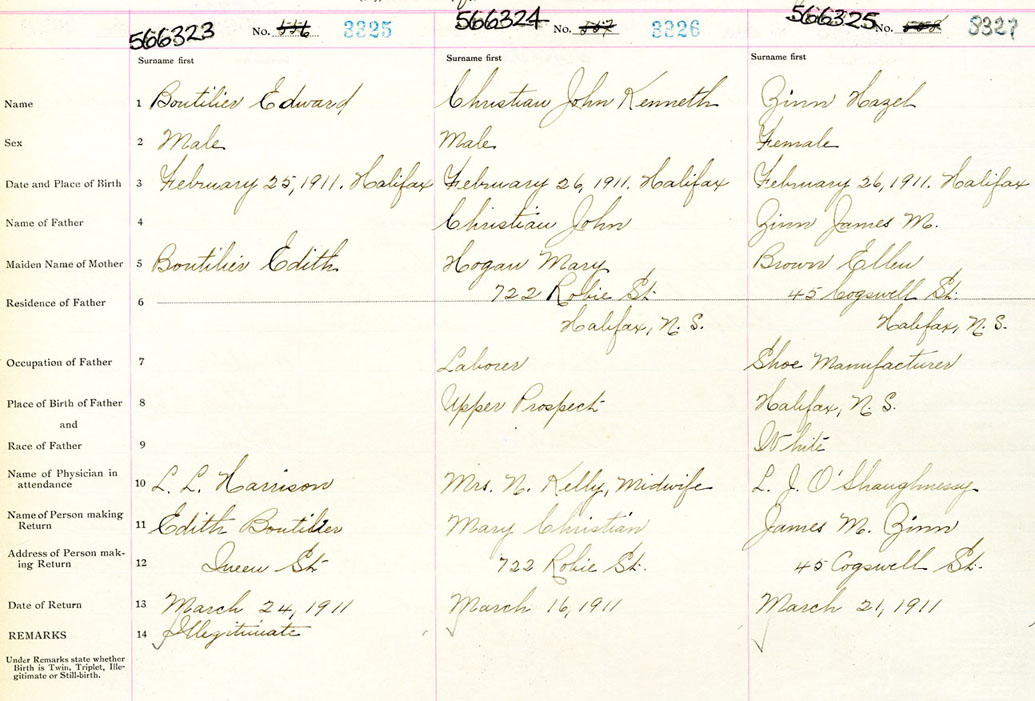 566323 No. 556 3325 566324 No. 557 3326 566325 No. 558 3327
Surname first Surname first Surname first
Name 1 Boutilier Edward Christian John Kenneth Zinn Hazel
Sex 2 Male Male Female
Date and Place of Birth 3 February 25, 1911. Halifax February 26, 1911. Halifax February 26, 1911. Halifax
Name of Father 4 Christian John Zinn James M.
Maiden Name of Mother 5 Boutilier Edith Hogan Mary Brown Ellen
Residence of Father 6 722 Robie St. 45 Cogswell St.
Halifax, N. S. Halifax, N. S.
Occupation of Father 7 Laborer Shoe Manufacturer
Place of Birth of Father 8 Upper Prospect Halifax, N. S.
and
Race of Father 9 White
Name of Physician in
attendance 10 L. L. Harrison Mrs. N. Kelly, Midwife L. J. O'Shaughnessy
Name of Person making
Return 11 Edith Boutilier Mary Christian James M. Zinn
Address of Person mak-
ing Return 12 Queen St. 722 Robie St. 45 Cogswell St.
Date of Return 13 March 24, 1911 March 16, 1911 March 21, 1911
REMARKS 14 Illegitimate
Under Remarks state whether
Birth is Twin, Triplet, Ille-
gitimate or Still-birth.